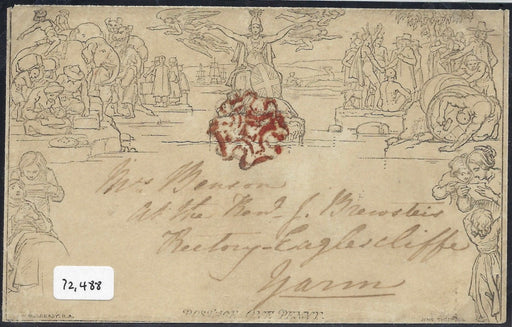 Mrs Benson
At the Revd. J. Brewsters
Rectory - Eaglescliffe
Yarm
72,488
POSTAGE ONE PENNY.